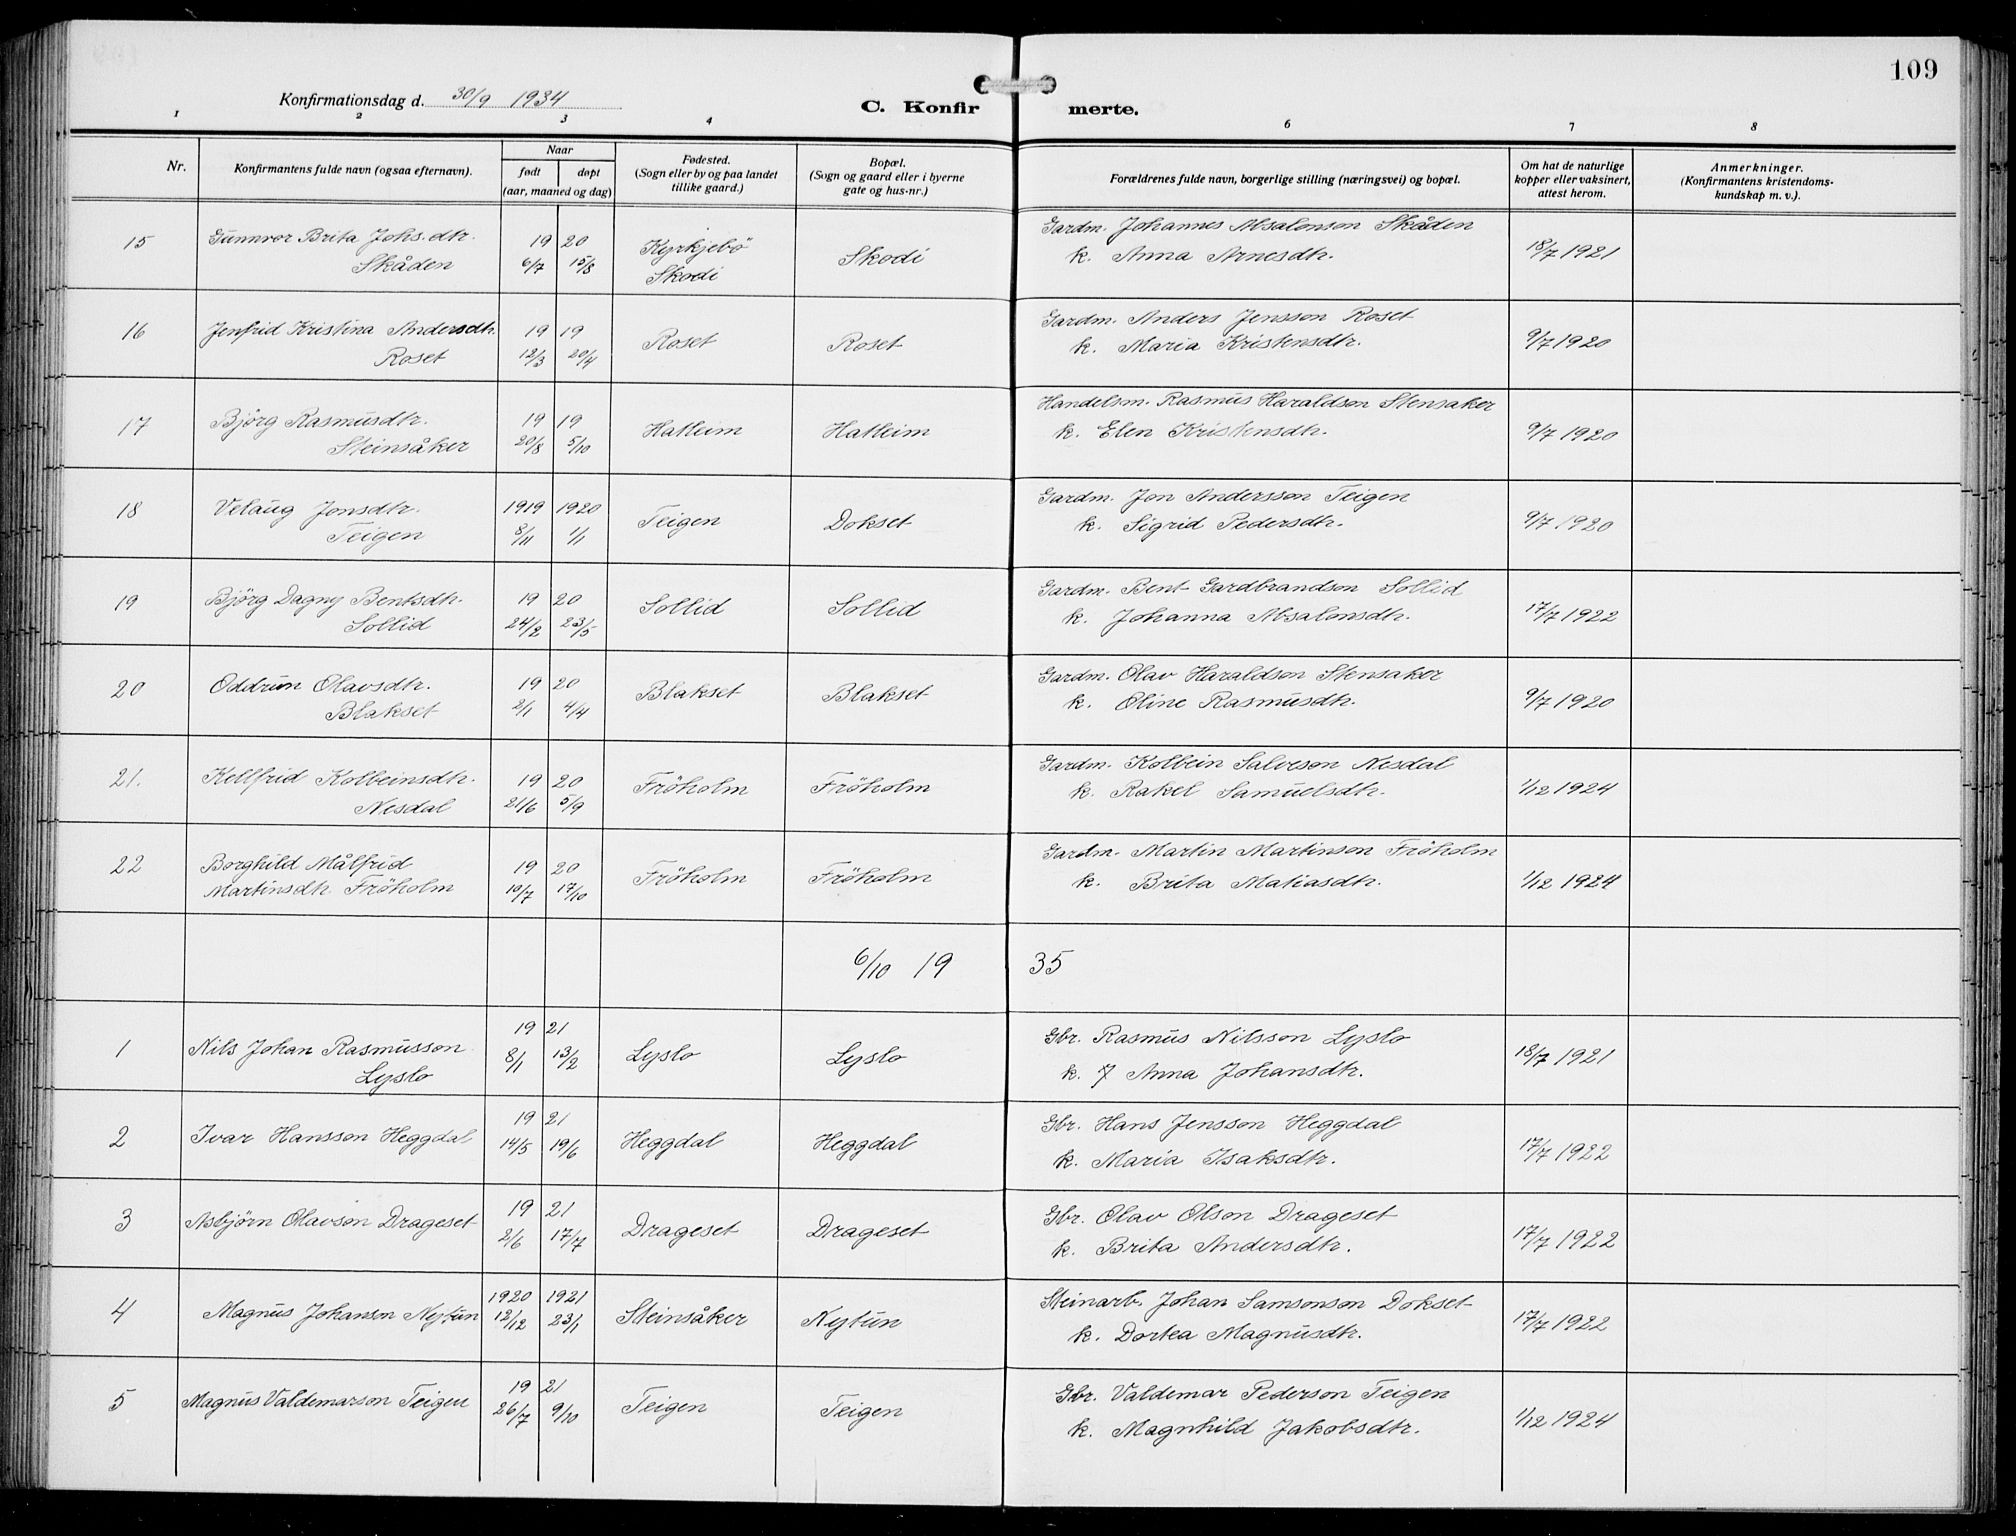 109
Konfirmationsdag d. 30/9 1934
C. Konfirmerte.
1 2 3 4 6 7 8
Nr.
Konfirmantens fulde navn (ogsaa efternavn).
Naar
født døpt
(aar, maaned og dag)
Fødested.
(Sogn eller by og paa landet
tillike gaard.)
Bopæl.
(Sogn og gaard eller i byerne
gate og hus-nr.)
Forældrenes fulde navn, borgerlige stilling (næringsvei) og bopæl.
Om hat de naturlige
kopper eller vaksinert,
attest herom.
Anmerkninger.
(Konfirmantens kristendoms-
kundskap m. v.).
15 Gunnvor Brita Johs.dtr. 19 20 Kyrkjebö Skodi Gardm. Johannes Absalonson Skåden 18/7 1921
Skåden 6/7 15/8 Skodi k. Anna Arnesdtr.
16 Jenfrid Kristina Andersdtr. 19 19 Roset Roset Gardm. Anders Jensson Roset 9/7 1920
Roset 12/3 20/4 k. Maria Kristensdtr.
17 Björg Rasmusdtr. 19 19 Hatleim Hatleim Handelsm. Rasmus Haraldson Stensaker 9/7 1920
Steinsåker 20/8 5/10 k. Elen Kristensdtr.
18 Velaug Jonsdtr. 1919 1920 Teigen Dokset Gardm. Jon Andersson Teigen 9/7 1920
Teigen 8/11 1/1 k. Sigrid Pedersdtr.
19 Bjørg Dagny Bentsdtr. 19 20 Sollid Sollid Gardm. Bent Gardbrandson Sollid 17/7 1922
Sollid 24/2 23/5 k. Johanna Absalonsdtr.
20 Oddrun Olavsdtr. 19 20 Blakset Blakset Gardm. Olav Haraldson Stensaker 9/7 1920
Blakset 2/1 4/4 k. Oline Rasmusdtr.
21. Kellfrid Kolbeinsdtr. 19 20 Fröholm Fröholm Gardm. Kolbein Salveson Nesdal 1/12 1924
Nesdal 21/6 5/9 k. Rakel Samuelsdtr.
22 Borghild Målfrid 19 20 Fröholm Fröholm Gardm. Martin Martinson Fröholm 1/12 1924
Martinsdtr. Fröholm 10/7 17/10 k. Brita Matiasdtr.
6/10 19 35
1 Nils Johan Rasmusson 19 21 Lyslo Lyslo Gbr. Rasmus Nilsson Lyslo 18/7 1921
Lyslo 8/1 13/2 k. J Anna Johansdtr.
2 Ivar Hansson Heggdal 19 21 Heggdal Heggdal Gbr. Hans Jensson Heggdal 17/7 1922
14/5 19/6 k. Maria Isaksdtr.
3 Asbjörn Olavson Drageset 19 21 Drageset Drageset Gbr. Olav Olson Drageset 17/7 1922
2/6 17/7 k. Brita Andersdtr.
4 Magnus Johanson Nytun 1920 1921 Steinsåker Nytun Steinarb. Johan Samsonson Dokset 17/7 1922
12/12 23/1 k. Dortea Magnusdtr.
5 Magnus Valdemarson Teigen 19 21 Teigen Teigen Gbr. Valdemar Pederson Teigen 1/12 1924
26/7 9/10 k. Magnhild Jakobsdtr.